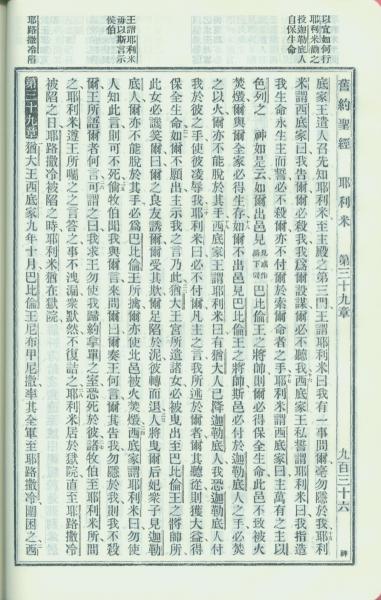 舊約聖經　耶利米　第三十九章　九百三十六　神
以宜如何行
耶利米誨之
投迦勒底人
自保生命
王謂耶利米
毋以斯言示
侯伯
耶路撒冷陷
底家王遣人召先知耶利米至主殿之第三門王謂耶利米曰我有一事問爾毫勿隱於我耶利
米謂西底家曰我告爾爾必殺我我爲爾設謀爾必不聽我西底家王私誓謂耶利米曰我指造
我生命永生主而誓必不殺爾亦不付爾於索爾命者之手耶利米謂西底家曰主萬有之主以
色列之　神如是云如爾出邑見巴比倫王之將帥則爾必得保全生命此邑不致被火
焚燬爾與爾全家必得生存如爾不出邑見巴比倫王之將帥斯邑必付於迦勒底人之手必焚
之以火爾亦不能脫於其手西底家王謂耶利米曰有猶大人已降迦勒底人我恐迦勒底人付
我於彼之手使彼凌辱我耶利米曰必不付爾凡主之言我所述於爾者爾其聽從則獲大益得
保全生命如爾不願出主示我之言乃此猶大王宮所遺諸女必被曳出至巴比倫王之將帥所
此女必譏笑爾曰爾之良友誘爾爾受其欺爾足陷於泥彼轉而退人將曳爾后妃衆子見迦勒
底人爾亦不能脫於其手必爲巴比倫王所擒爾亦使此邑被火焚燬西底家謂耶利米曰勿使
人知此言則可不死倘牧伯聞我與爾言來問爾曰爾奏王何言爾其告我勿隱於我則我不殺
爾王所語爾者何言可謂之曰我求王勿使我歸約拿單之室恐死於彼諸牧伯至耶利米所問
之耶利米遵王所囑之之言答之事不洩漏衆默然不復詰之耶利米居於獄院直至耶路撒冷
被陷之日耶路撒冷被陷之時耶利米猶在獄院
第三十九章　猶大王西底家九年十月巴比倫王尼布甲尼撒率其全軍至耶路撒冷圍困之西